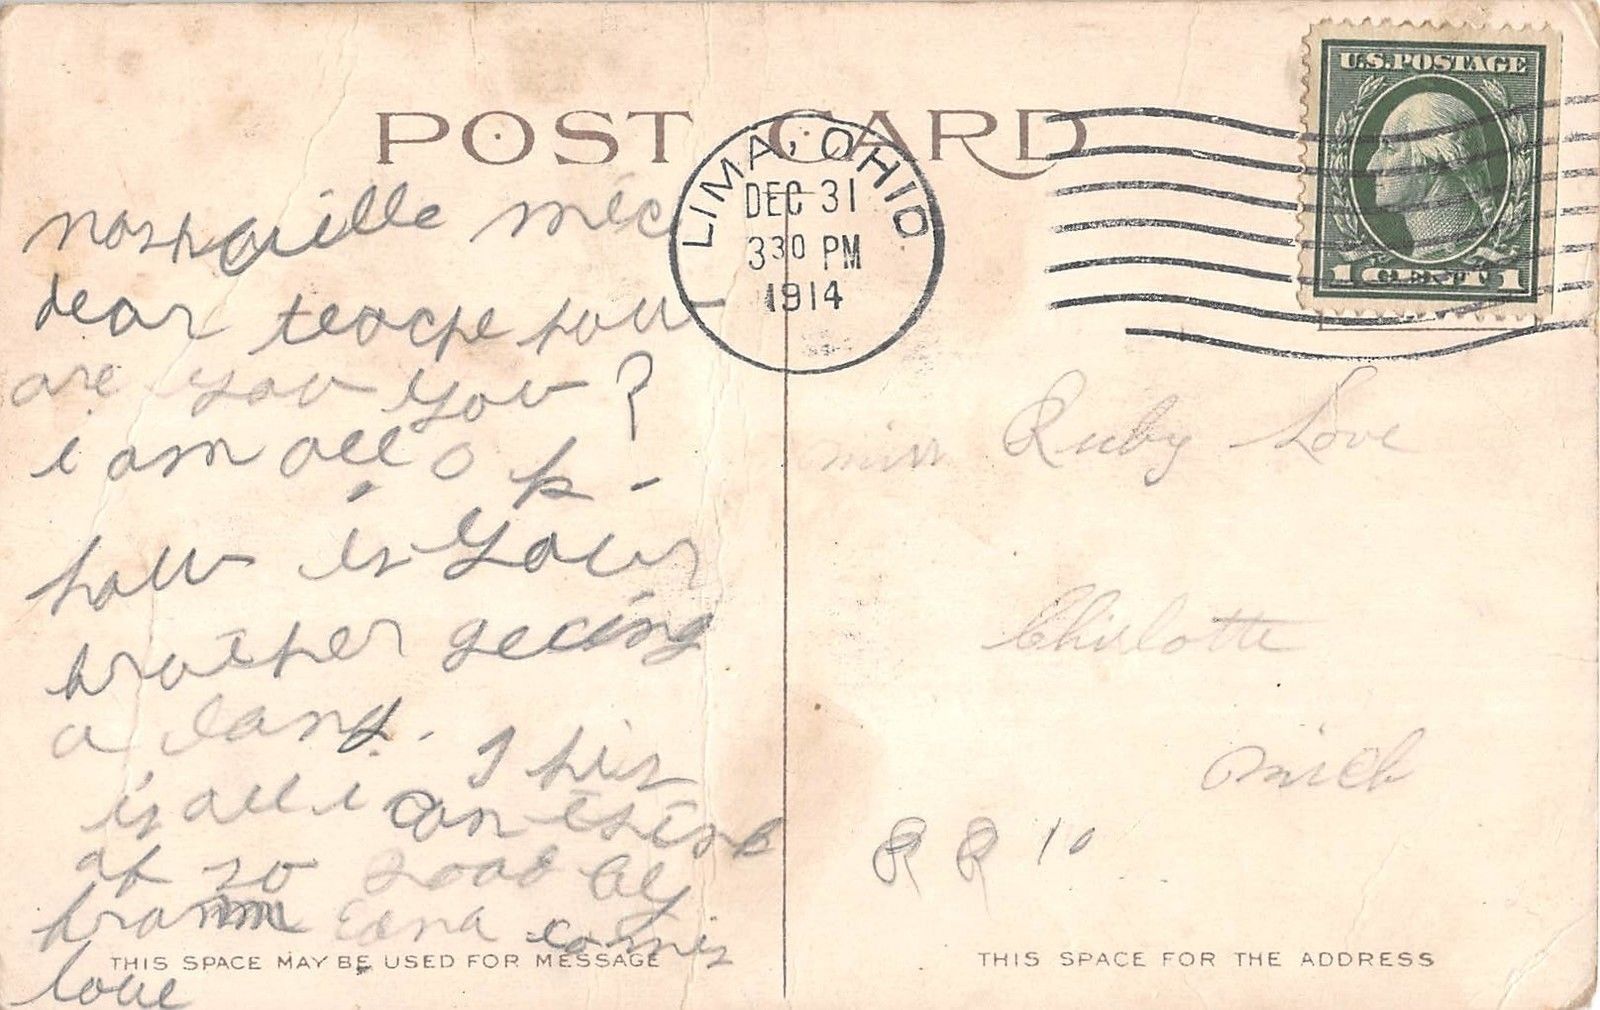 POST CARD
LIMA, OHIO.
DEC 31
330 PM
1914
U.S.POSTAGE
1 CENT 1
nashville mic
dear teacpe how
are you you?
i am all o k -
how is your
brother geting
a lang. This
is all i can think
of so good by
from Edna
love
miss Ruby Love
Chirlotte
mich
R R 10
THIS SPACE MAY BE USED FOR MESSAGE
THIS SPACE FOR THE ADDRESS